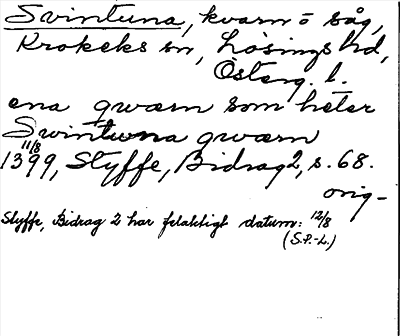 Svintuna, kvarn o såg,
Krokeks sn, Lösings hd,
Österg. l.
ena qwærn som heter
Swintuna qwærn
11/8
1399, Styffe, Bidrag 2, s. 68.
orig-
Styffe, Bidrag 2 har felaktigt datum: 12/8
(S.P.-L.)